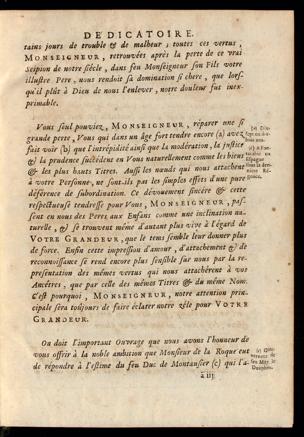 DEDICATOIRE.
tains jours de trouble & de malheur; toutes ces vertus,
MONSEIGNEUR, retrouvées après la perte de ce vrai
Scipion de notre siécle, dans feu Monseigneur son Fils votre
illustre Pere, nous rendoit sa domination si chere, que lors-
qu'il plût à Dieu de nous l'enlever, notre douleur fut inex-
primable.
Vous seul pouviez, MONSEIGNEUR, réparer une si
grande perte, Vous qui dans un âge fort tendre encore (a) avez
fait voir (b) que l'intrépidité ainsi que la modération, la justice
& la prudence succédent en Vous naturellement comme les biens
& les plus hauts Titres. Aussi les nœuds qui nous attachent
à votre Personne, ne sont-ils pas les simples effets d'une pure
déférence de subordination. Ce dévouement sincére & cette
respectueuse tendresse pour Vous, MONSEIGNEUR, pas-
sent en nous des Peres aux Enfans comme une inclination na-
turelle, & se trouvent même d'autant plus vive à l'égard de
VOTRE GRANDEUR, que le tems semble leur donner plus
de force. Enfin cette impression d'amour, d'attachement & de
reconnoissance se rend encore plus sensible sur nous par la re-
présentation des mêmes vertus qui nous attachérent à vos
Ancêtres, que par celle des mêmes Titres & du même Nom.
C'est pourquoi, MONSEIGNEUR, notre attention prin-
cipale sera toûjours de faire éclater notre zéle pour VOTRE
GRANDEUR.
On doit l'important Ouvrage que nous avons l'honneur de
vous offrir à la noble ambition que Monsieur de la Roque eut
de répondre à l'estime du feu Duc de Montausier (c) qui l'a-
à iij